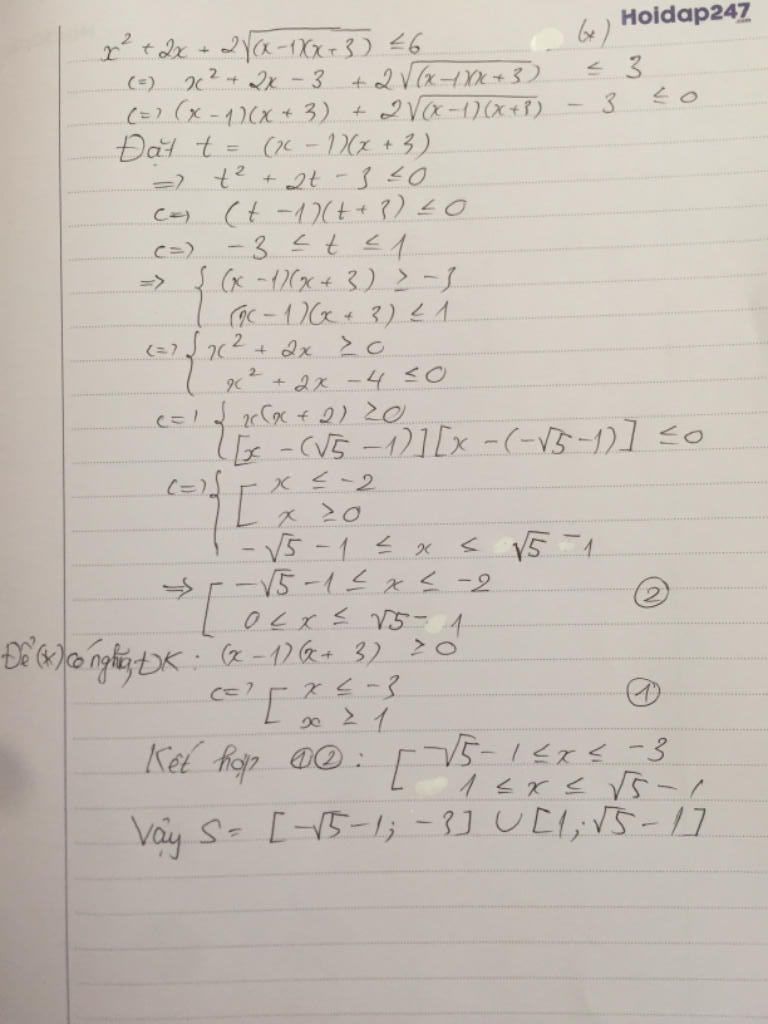 Hoidap247
.com
x² + 2x + 2√((x-1)(x+3)) ≤ 6 (*)
(=) x² + 2x - 3 + 2√((x-1)(x+3)) ≤ 3
(=) (x-1)(x+3) + 2√((x-1)(x+3)) - 3 ≤ 0
Đặt t = (x-1)(x+3)
=> t² + 2t - 3 ≤ 0
(=) (t-1)(t+3) ≤ 0
(=) -3 ≤ t ≤ 1
=> { (x-1)(x+3) ≥ -3
(x-1)(x+3) ≤ 1
(=) { x² + 2x ≥ 0
x² + 2x - 4 ≤ 0
(=) { x(x+2) ≥ 0
[x - (√5 - 1)][x - (-√5 - 1)] ≤ 0
(=) { [ x ≤ -2
x ≥ 0
-√5 - 1 ≤ x ≤ √5 - 1
=> [ -√5 - 1 ≤ x ≤ -2 ②
0 ≤ x ≤ √5 - 1
Để (*) có nghĩa, ĐK: (x-1)(x+3) ≥ 0
(=) [ x ≤ -3 ①
x ≥ 1
Kết hợp ①②: [ -√5 - 1 ≤ x ≤ -3
1 ≤ x ≤ √5 - 1
Vậy S = [-√5-1; -3] ∪ [1; √5-1]